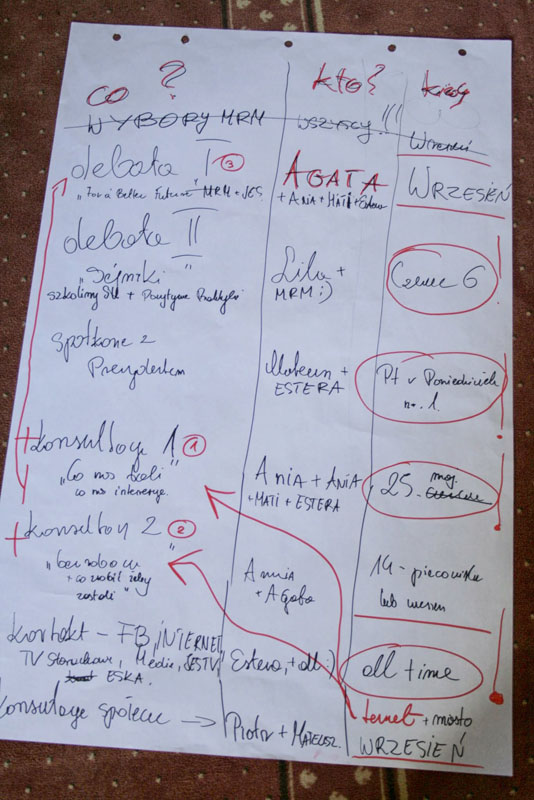 co ? kto? kiedy
WYBORY MRM WSZYSCY !!! Wrzesień
debata I ③ AGATA WRZESIEŃ
"For a Better Future" MRM + JES. + ANIA + MATI + Estera
debata II
"Sejmiki" Lila + Czerwiec 6
szkolimy SU + Pozytywne Praktyki MRM :)
spotkanie z Mateusz + Pt v Poniedziałek
Prezydentem ESTERA nr. 1.
+ Konsultacje 1 ①
"Co nas boli ANIA + ANIA 25. maj.
co nas interesuje. + MATI + ESTERA
+ Konsultacje 2 ②
"bezrobocie Annia 14 -
+ co zrobić żeby + Agata lub
zostali"
Kontakt - FB, INTERNET,
TV Słoneczna, Media, JESTV, Estera, + all :) all time
ESKA.
Konsultacje społecz → Piotr + MATEUSZ. termet + miasto
WRZESIEŃ